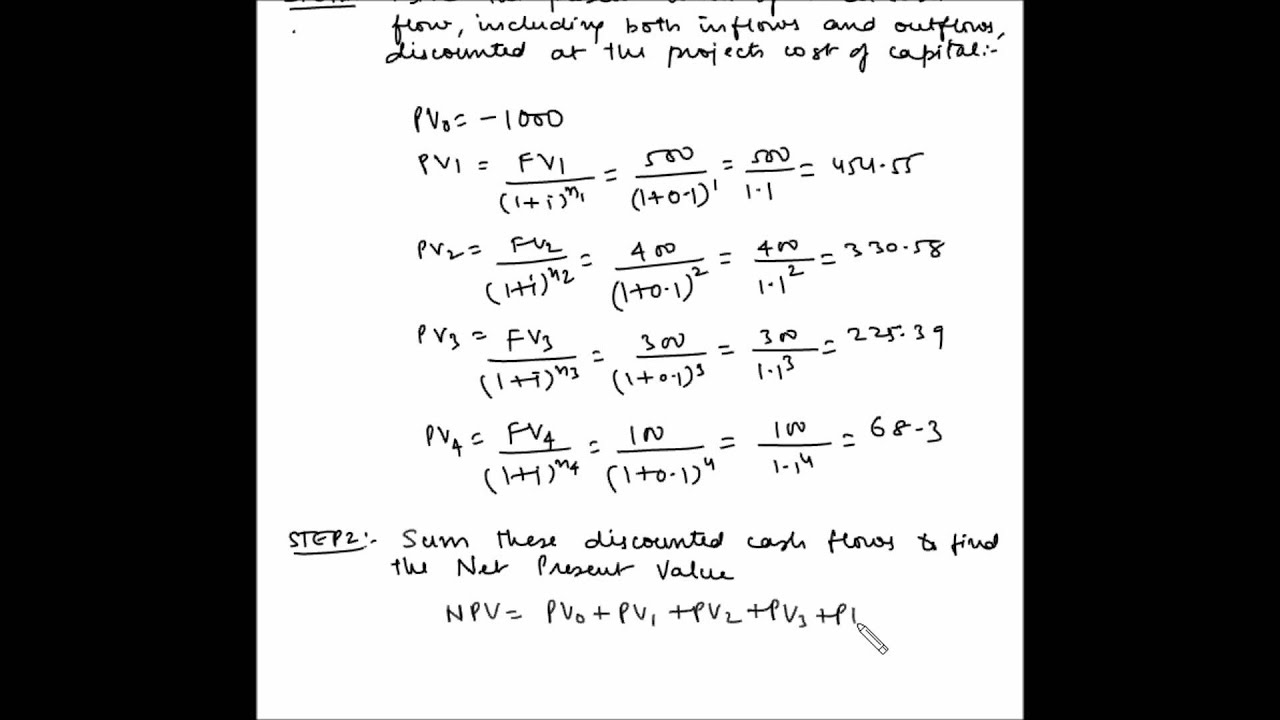 flow, including both inflows and outflows,
discounted at the projects cost of capital:-
PV₀ = -1000
PV1 = FV1/(1+i)^n₁ = 500/(1+0.1)^1 = 500/1.1 = 454.55
PV₂ = FV₂/(1+i)^n2 = 400/(1+0.1)^2 = 400/1.1^2 = 330.58
PV₃ = FV₃/(1+i)^n3 = 300/(1+0.1)^3 = 300/1.1^3 = 225.39
PV₄ = FV₄/(1+i)^n₄ = 100/(1+0.1)^4 = 100/1.1^4 = 68.3
STEP2:- Sum these discounted cash flows to find
the Net Present Value
NPV = PV₀ + PV₁ + PV₂ + PV₃ + P